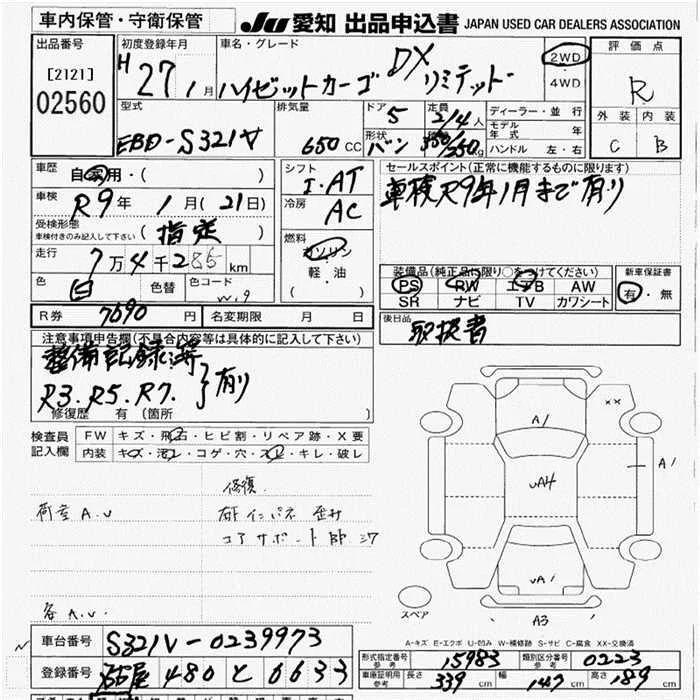 車内保管・守衛保管 JU 愛知 出品申込書 JAPAN USED CAR DEALERS ASSOCIATION
出品番号
[2121]
02560
初度登録年月
H27年 1月
車名・グレード
ハイゼットカーゴ DX リミテッド
2WD
・
4WD
評価点
R
外装 内装
C B
型式
EBD-S321V
排気量
650 CC
ドア
5
形状
バン
定員
2/4人
350/250kg
ディーラー・並行
モデル年式 年
ハンドル 左・右
車歴
自家用・( )
車検
R9年 1月(21日)
受検形態
車検付きのみ記入して下さい
( 指定 )
走行
7万4千285km
色
白
色替
色コード
W19
シフト
I・AT
冷房
AC
燃料
ガソリン
軽・油
( )
セールスポイント(正常に機能するものに限ります)
車検R9年1月まで有り
装備品(純正品は限り○をつけてください)
PS RW エアB AW
SR ナビ TV カワシート
新車保証書
有・無
R券 7690円
名変期限 月 日
後日品
取扱書
注意事項申告欄(不具合内容等は具体的に記入して下さい)
整備記録簿
R3.R5.R7. } 有り
修復歴 有 (箇所 )
検査員
記入欄
FW キズ・飛石・ヒビ割・リペア跡・X要
内装 キズ・汚レ・コゲ・穴・スレ・キレ・破レ
修復
荷室 A.U
右Fインパネ 歪み
コアサポート部
各 A.U.
A1
××
A1
UA4
UA1
A3
スペア
A-キズ E-エクボ U-凹み W-補修跡 S-サビ C-腐食 XX-交換済
車台番号 S321V-0239973
登録番号 名古屋 480 と 6633
形式指定番号
参考
15983
類別区分番号
参考
0223
車庫証明用
参考
長さ 339 cm
幅 147 cm
高さ 189 cm